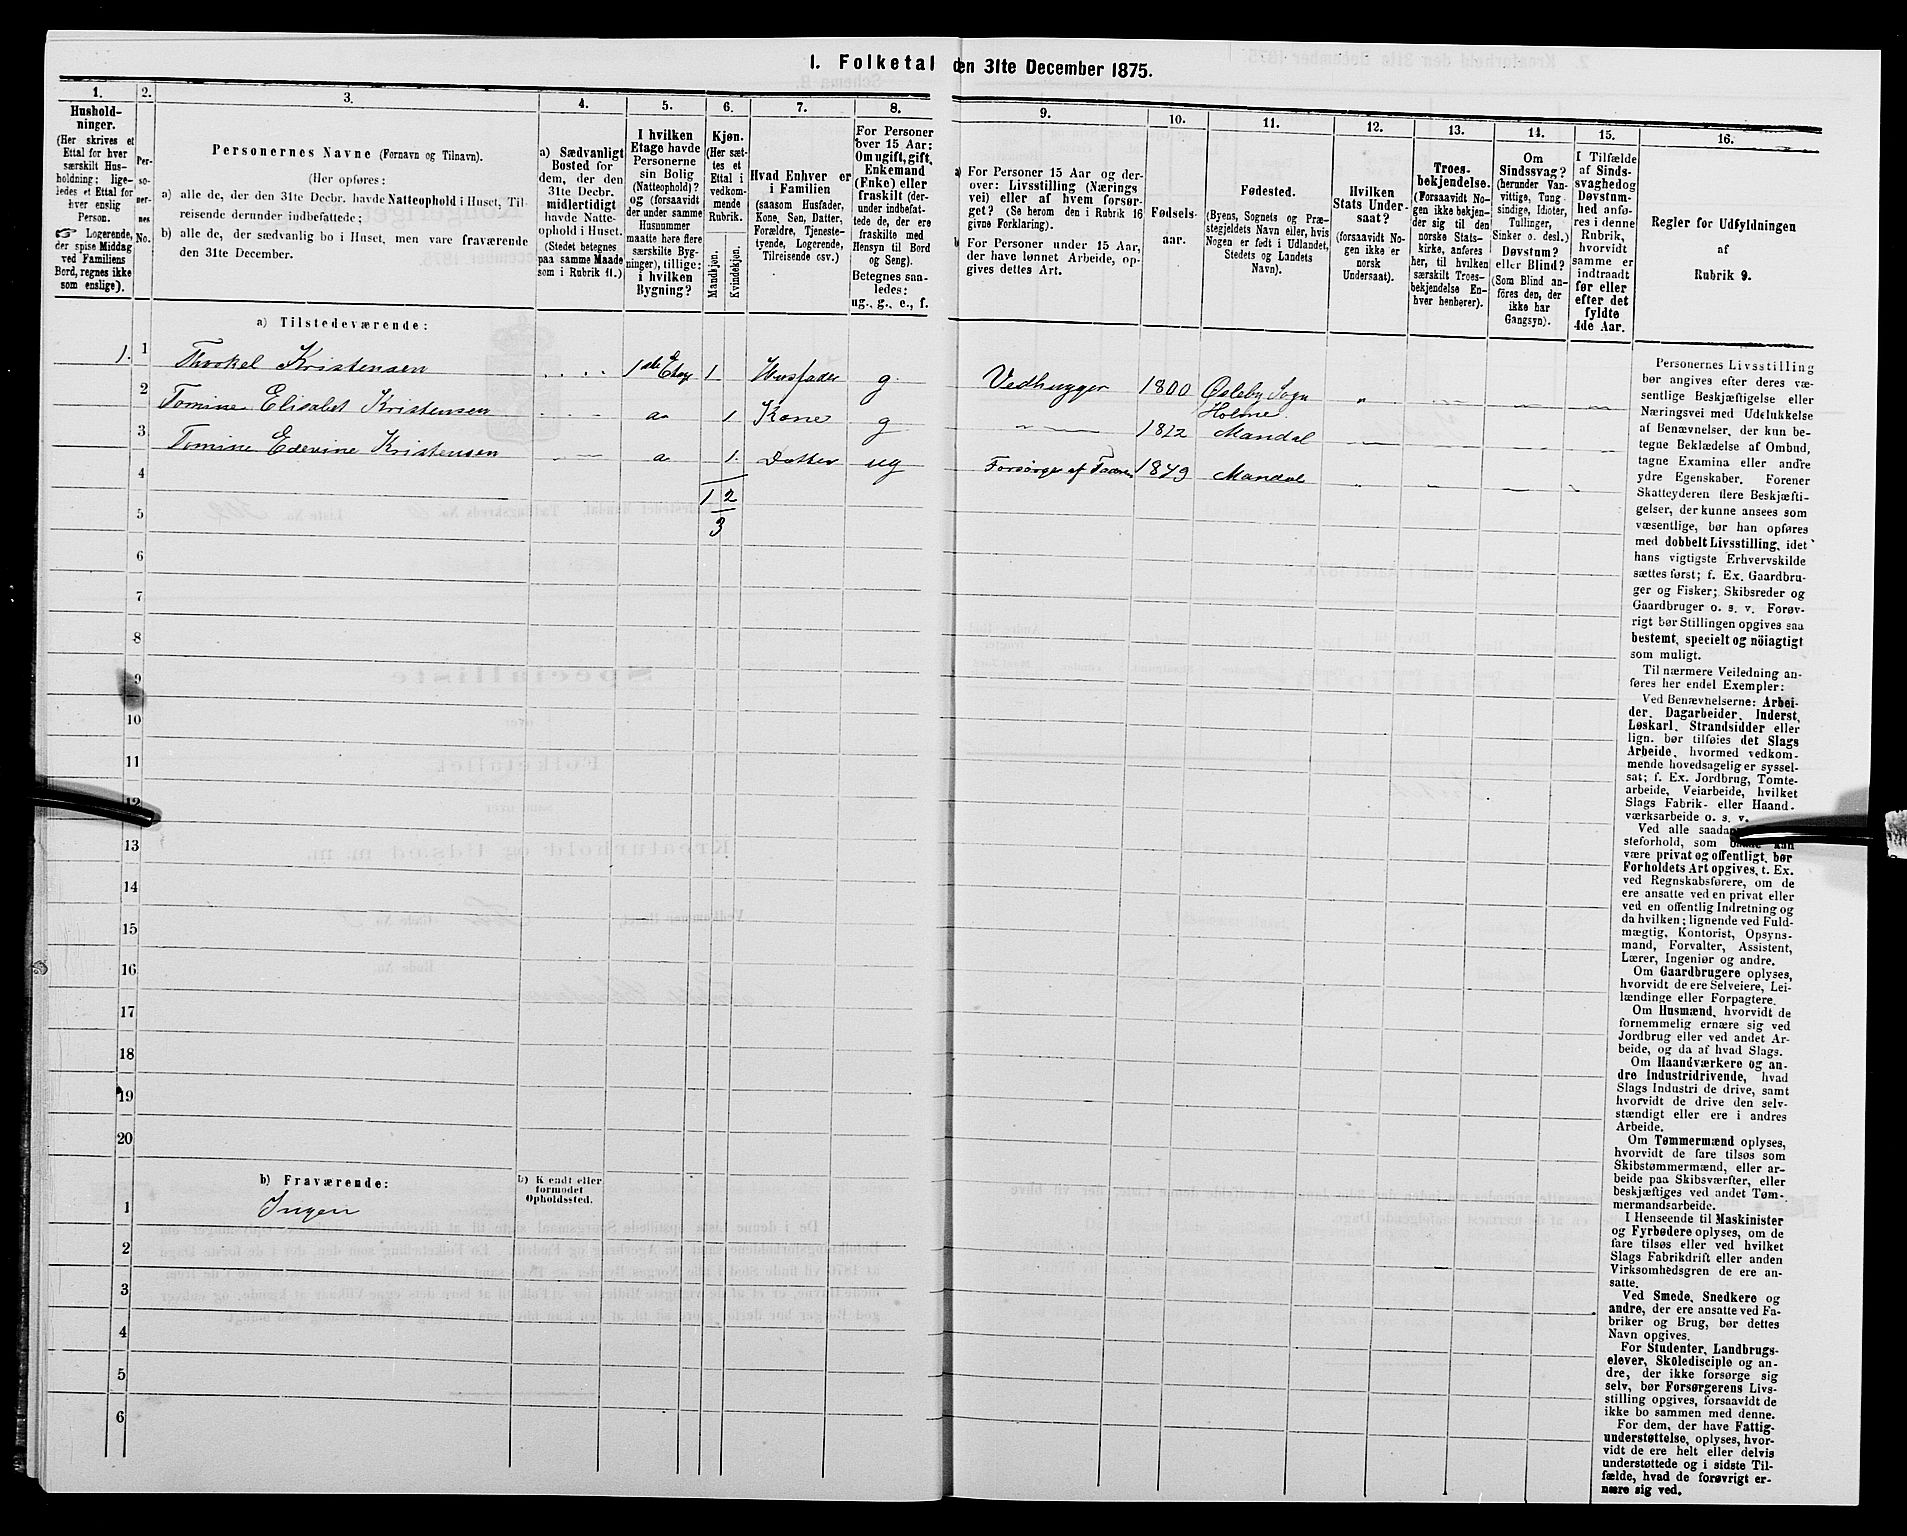 1. Folketal den 31te December 1875.
1.
Hushold-
ninger.
(Her skrives et
Ettal for hver
særskilt Hus-
holdning; lige-
ledes et Ettal for
hver enslig
Person.
☞ Logerende,
der spise Middag
ved Familiens
Bord, regnes ikke
som enslige).
2.
Per-
so-
ner-
nes
No.
3.
Personernes Navne (Fornavn og Tilnavn).
(Her opføres:
a) alle de, der den 31te Decbr. havde Natteophold i Huset, Til-
reisende derunder indbefattede;
b) alle de, der sædvanlig bo i Huset, men vare fraværende
den 31te December.
4.
a) Sædvanligt
Bosted for
dem, der den
31te Decbr.
midlertidigt
havde Natte-
ophold i Huset.
(Stedet betegnes
paa samme Maade
som i Rubrik 11.)
5.
I hvilken
Etage havde
Personerne
sin Bolig
(Natteophold)?
og (forsaavidt
der under samme
Husnummer
maatte høre flere
særskilte Byg-
ninger), tillige:
i hvilken
Bygning?
6.
Kjøn.
(Her sæt-
tes et
Ettal i
vedkom-
mende
Rubrik.
Mandkjøn.
Kvindekjøn.
7.
Hvad Enhver er
i Familien
(saasom Husfader,
Kone, Søn, Datter,
Forældre, Tjeneste-
tyende, Logerende,
Tilreisende osv.)
8.
For Personer
over 15 Aar:
Om ugift, gift,
Enkemand
(Enke) eller
fraskilt (der-
under indbefat-
tede de, der ere
fraskilte med
Hensyn til Bord
og Seng).
Betegnes saa-
ledes:
ug., g., e., f.
9.
a) For Personer 15 Aar og der-
over: Livsstilling (Nærings
vei) eller af hvem forsør-
get? (Se herom den i Rubrik 16
givne Forklaring).
b. For Personer under 15 Aar,
der have lønnet Arbeide, op-
gives dettes Art.
10.
Fødsels-
aar.
11.
Fødested.
(Byens, Sognets og Præ-
stegjeldets Navn eller, hvis
Nogen er født i Udlandet,
Stedets og Landets
Navn).
12.
Hvilken
Stats Under-
saat?
(forsaavidt No-
gen ikke er
norsk
Undersaat).
13.
Troes-
bekjendelse.
(Forsaavidt No-
gen ikke bekjen-
der sig til den
norske Stats-
kirke, anføres
her, til hvilken
særskilt Troes-
bekjendelse En-
hver henhører).
14.
Om
Sindssvag?
(herunder Van-
vittige, Tung-
sindige, Idioter,
Tullinger,
Sinker o. desl.)
Døvstum?
eller Blind?
(Som Blind an-
føres den, der
ikke har
Gangsyn).
15.
I Tilfælde
af Sinds-
svaghed og
Døvstum-
hed anfø-
res i denne
Rubrik,
hvorvidt
samme er
indtraadt
før eller
efter det
fyldte
4de Aar.
16.
Regler for Udfyldningen
af
Rubrik 9.
a) Tilstedeværende:
1. 1 Thorkel Kristensen 1ste Etag 1 Husfader g. Vedhugger 1800 Øsleby Sogn
Holme
2 Tomine Elisabet Kristensen a 1. Kone g 1812 Mandal
3 Tomine Edevine Kristensen a 1. Datter ug Forsørges af Faderen 1849 Mandal
4 1 2
5 3
6
7
8
9
10
11
12
13
14
15
16
17
18
19
20
b) Fraværende:
b) Kjendt eller
formodet
Opholdssted.
1 Ingen
2
3
4
5
6
Personernes Livsstilling
bør angives efter deres væ-
sentlige Beskjæftigelse eller
Næringsvei med Udelukkelse
af Benævnelser, der kun be-
tegne Beklædelse af Ombud,
tagne Examina eller andre
ydre Egenskaber. Forener
Skatteyderen flere Beskjæfti-
gelser, der kunne ansees som
væsentlige, bør han opføres
med dobbelt Livsstilling, idet
hans vigtigste Erhvervskilde
sættes først; f. Ex. Gaardbru-
ger og Fisker; Skibsreder og
Gaardbruger o. s. v. Forøv-
rigt bør Stillingen opgives saa
bestemt, specielt og nöiagtigt
som muligt.
Til nærmere Veiledning an-
føres her endel Exempler:
Ved Benævnelserne: Arbei-
der, Dagarbeider, Inderst,
Løskarl, Strandsidder eller
lign. bør tilføies det Slags
Arbeide, hvormed vedkom-
mende hovedsagelig er syssel-
sat; f. Ex. Jordbrug, Tomte-
arbeide, Veiarbeide, hvilket
Slags Fabrik- eller Haand-
værksarbeide o. s. v.
Ved alle saadanne
steforhold, som baade kan
være privat og offentligt, bør
Forholdets Art opgives, t. Ex.
ved Regnskabsførere, om de
ere ansatte ved en privat eller
ved en offentlig Indretning og
da hvilken; lignende ved Fuld-
mægtig, Kontorist, Opsyns-
mand, Forvalter, Assistent,
Lærer, Ingeniør og andre.
Om Gaardbrugere oplyses,
hvorvidt de ere Selveiere, Lei-
lændinge eller Forpagtere.
Om Husmænd, hvorvidt de
fornemmelig ernære sig ved
Jordbrug eller ved andet Ar-
beide, og da af hvad Slags.
Om Haandværkere og an-
dre Industridrivende, hvad
Slags Industri de drive, samt
hvorvidt de drive den selv-
stændigt eller ere i andres
Arbeide.
Om Tømmermænd oplyses,
hvorvidt de fare tilsøs som
Skibstømmermænd, eller ar-
beide paa Skibsværfter, eller
beskjæftiges ved andet Tøm-
mermandsarbeide.
I Henseende til Maskinister
og Fyrbødere oplyses, om de
fare tilsøs eller ved hvilket
Slags Fabrikdrift eller anden
Virksomhedsgren de ere an-
satte.
Ved Smede, Snedkere og
andre, der ere ansatte ved Fa-
briker og Brug, bør dettes
Navn opgives.
For Studenter, Landbrugs-
elever, Skoledisciple og an-
dre, der ikke forsørge sig
selv, bør Forsørgerens Livs-
stilling opgives, forsaavidt de
ikke bo sammen med denne.
For dem, der have Fattig-
understøttelse, oplyses, hvor-
vidt de ere helt eller delvis
understøttede og i sidste Til-
fælde, hvad de forøvrigt er-
nære sig ved.